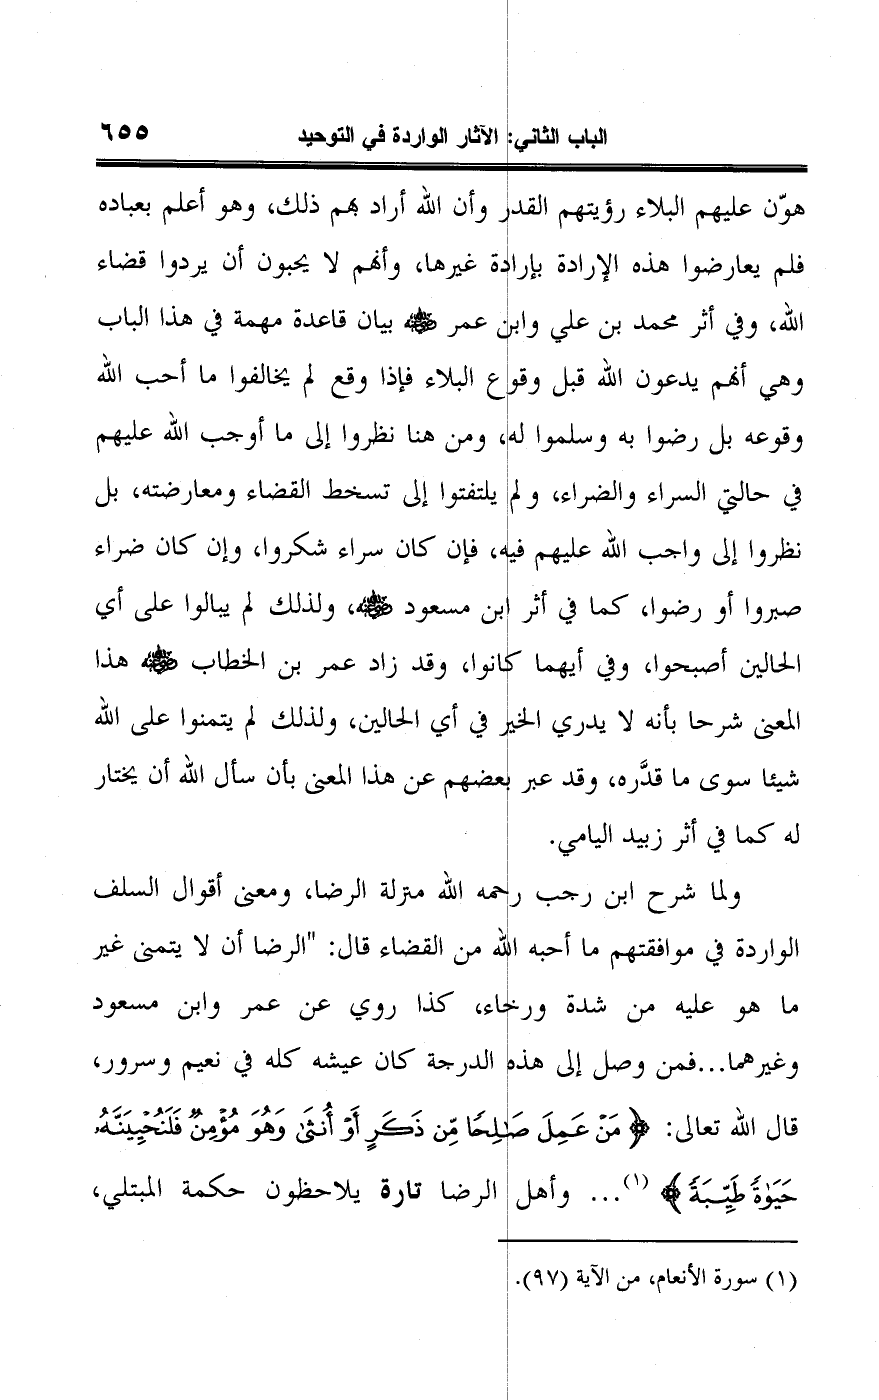 الباب الثاني: الآثار الواردة في التوحيد ٦٥٥
هوّن عليهم البلاء رؤيتهم القدر وأن الله أراد بهم ذلك، وهو أعلم بعباده
فلم يعارضوا هذه الإرادة بإرادة غيرها، وأنهم لا يحبون أن يردوا قضاء
الله، وفي أثر محمد بن علي وابن عمر ﷺ بيان قاعدة مهمة في هذا الباب
وهي أنهم يدعون الله قبل وقوع البلاء فإذا وقع لم يخالفوا ما أحب الله
وقوعه بل رضوا به وسلموا له، ومن هنا نظروا إلى ما أوجب الله عليهم
في حالتي السراء والضراء، ولم يلتفتوا إلى تسخط القضاء ومعارضته، بل
نظروا إلى واجب الله عليهم فيه، فإن كان سراء شكروا، وإن كان ضراء
صبروا أو رضوا، كما في أثر ابن مسعود رضي الله عنه، ولذلك لم يبالوا على أي
الحالين أصبحوا، وفي أيهما كانوا، وقد زاد عمر بن الخطاب رضي الله عنه هذا
المعنى شرحا بأنه لا يدري الخير في أي الحالين، ولذلك لم يتمنوا على الله
شيئا سوى ما قدَّره، وقد عبر بعضهم عن هذا المعنى بأن سأل الله أن يختار
له كما في أثر زبيد اليامي.
ولما شرح ابن رجب رحمه الله منزلة الرضا، ومعنى أقوال السلف
الواردة في موافقتهم ما أحبه الله من القضاء قال: "الرضا أن لا يتمنى غير
ما هو عليه من شدة ورخاء، كذا روي عن عمر وابن مسعود
وغيرهما...فمن وصل إلى هذه الدرجة كان عيشه كله في نعيم وسرور،
قال الله تعالى: ﴿مَنْ عَمِلَ صَٰلِحًا مِّن ذَكَرٍ أَوْ أُنثَىٰ وَهُوَ مُؤْمِنٌ فَلَنُحْيِيَنَّهُۥ
حَيَوٰةً طَيِّبَةً﴾ (١)... وأهل الرضا تارة يلاحظون حكمة المبتلي،
(١) سورة الأنعام، من الآية (٩٧).